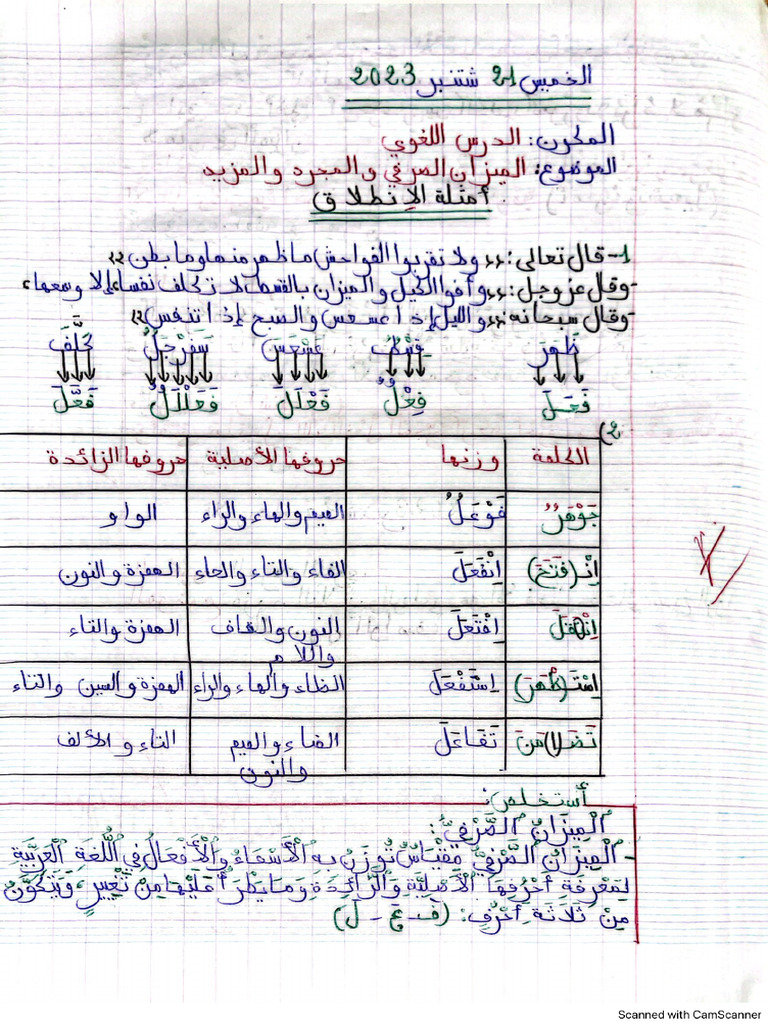 الخميس 21 شتنبر 2023
المكون: الدرس اللغوي
الموضوع: الميزان الصرفي والمجرد والمزيد
أمثلة الإنطلاق
1- قال تعالى: ,,ولا تقربوا الفواحش ما ظهر منها وما بطن,,
-وقال عز وجل: ,,وأوفوا الكيل والميزان بالقسط لا تكلف نفسا إلا وسعها,,
-وقال سبحانه ,,والليل إذا عسعس والصبح إذا تنفس,,
ظَهَرَ قِسْطٌ عَسْعَسَ سَفَرْجَلٌ كَلَّفَ
فَعَلَ فِعْلٌ فَعْلَلَ فَعَلْلَلٌ فَعَّلَ
2)
الكلمة وزنها حروفها الأصلية حروفها الزائدة
جَوْهَرٌ فَوْعَلٌ الجيم والهاء والراء الواو
اِنْـ(فَتَحَ) اِنْفَعَلَ الفاء والتاء والحاء الهمزة والنون
اِنْتَقَلَ اِفْتَعَلَ النون والقاف واللام الهمزة والتاء
اِسْتَـ(ظْهَرَ) اِسْتَفْعَلَ الظاء والهاء والراء الهمزة والسين والتاء
تَضَـ(ا)مَنَ تَفَاعَلَ الضاء والميم والنون التاء والألف
أستخلص:
الْمِيزَانُ الصَّرْفِيُّ:
-الْمِيزَانُ الصَّرْفِيُّ مِقْيَاسٌ تُوزَنُ بِهِ الْأَسْمَاءُ وَالْأَفْعَالُ فِي اللُّغَةِ الْعَرَبِيَّةِ
لِمَعْرِفَةِ أَحْرُفِهَا الْأَصْلِيَّةِ وَالزَّائِدَةِ وَمَا يَطْرَأُ عَلَيْهَا مِنْ تَغْيِيرٍ، وَيَتَكَوَّنُ
مِنْ ثَلَاثَةِ أَحْرُفٍ: (فَ - عَ - لَ)
Scanned with CamScanner